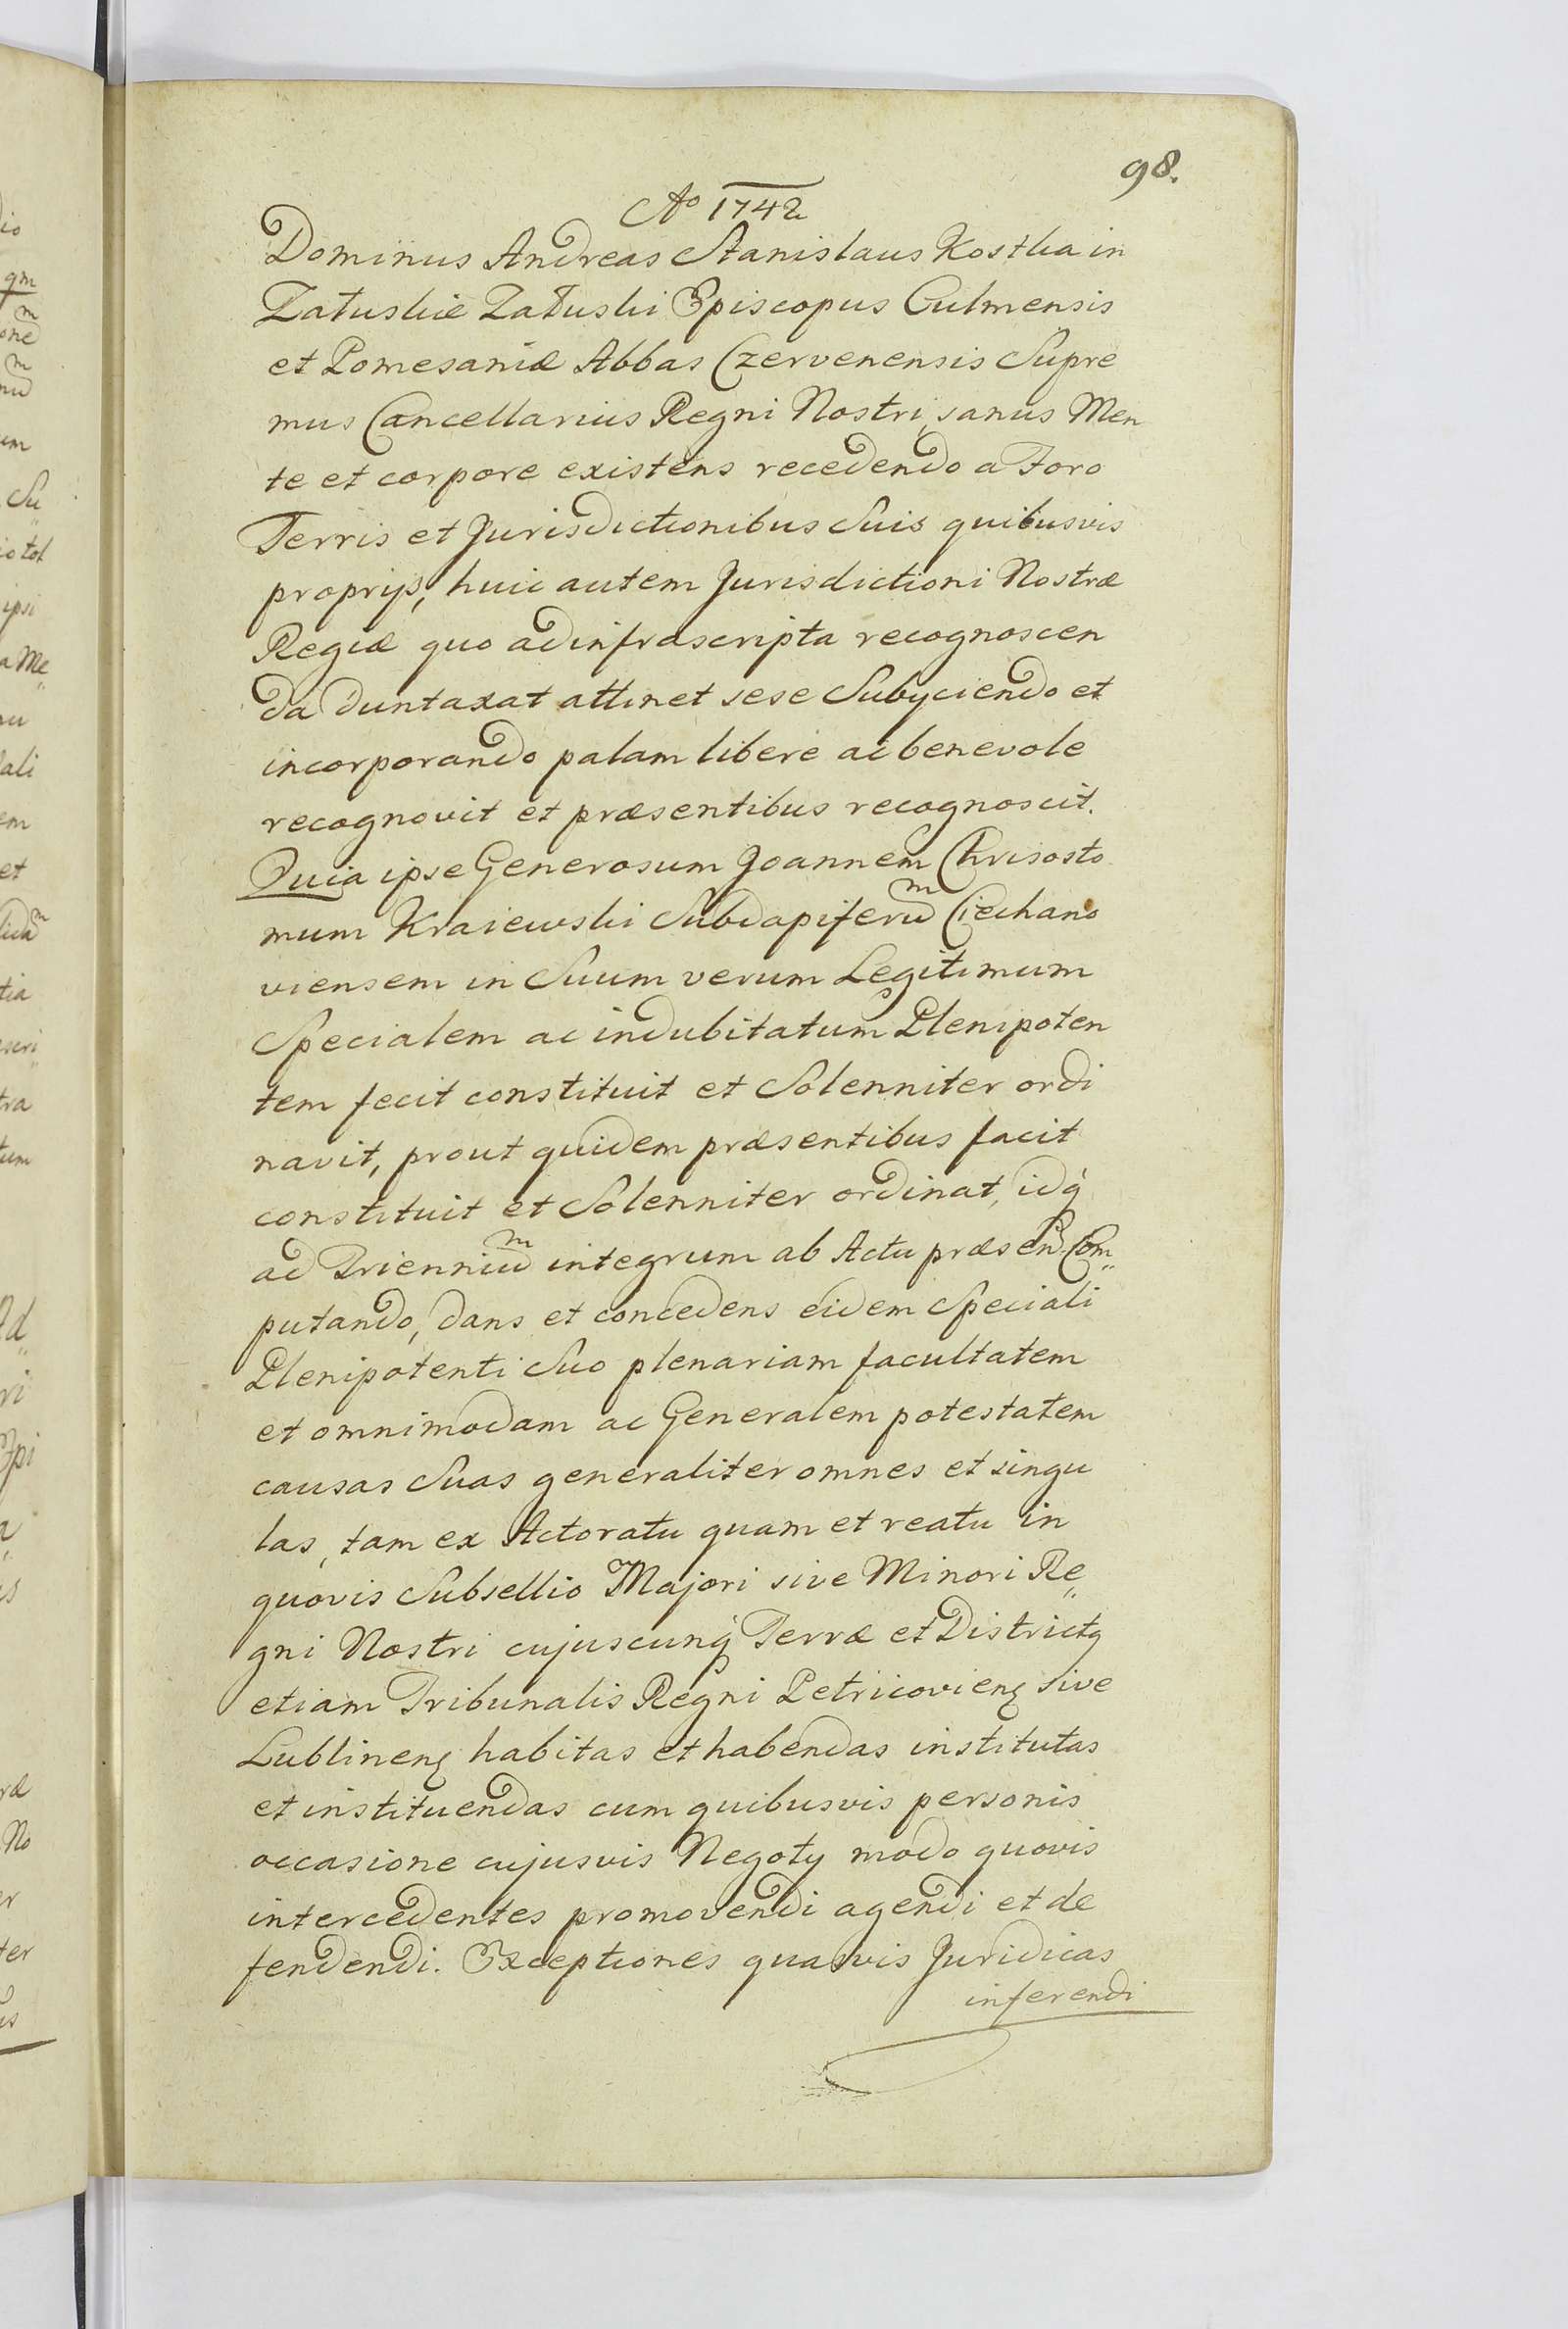 98.
Ao 1742
Dominus Andreas Stanislaus Kostka in
Załuskie Załuski Episcopus Culmensis
et Pomesaniæ Abbas Czervenensis Supre
mus Cancellarius Regni Nostri, sanus Men
te et corpore existens recedendo a Foro
Terris et Jurisdictionibus Suis quibusvis
proprijs, huic autem Jurisdictioni Nostræ
Regiæ quo ad infrascripta recognoscen
da duntaxat attinet sese Subijciendo et
incorporando palam libere ac benevole
recognovit et præsentibus recognoscit.
Quia ipse Generosum Joannem Chrisosto
mum Kraiewski Subdapiferum Ciechano
viensem in Suum verum Legitimum
Specialem ac indubitatum Plenipoten
tem fecit constituit et Solenniter ordi
navit, prout quidem præsentibus facit
constituit et Solenniter ordinat, idq́
ad Triennium integrum ab Actu præsen Com„
putando, dans et concedens eidem Speciali
Plenipotenti Suo plenariam facultatem
et omnimodam ac Generalem potestatem
causas Suas generaliter omnes et singu
las, tam ex Actoratu quam et reatu in
quovis Subsellio Majori sive Minori Re„
gni Nostri cujuscunq́ Terræ et Districtq
etiam Tribunalis Regni Petricovienȩ sive
Lublinenȩ habitas et habendas institutas
et instituendas cum quibusvis personis
occasione cujusvis Negotij modo quovis
intercedentes promovendi agendi et de
fendendi. Exceptiones quasvis Juridicas
inferendi